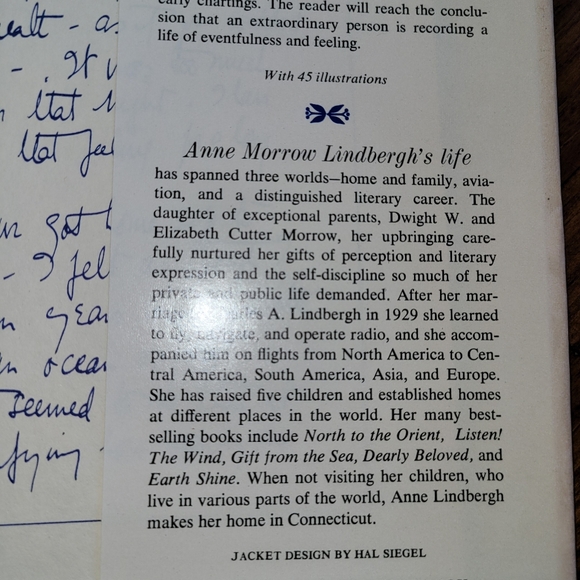 early chartings. The reader will reach the conclu-
sion that an extraordinary person is recording a
life of eventfulness and feeling.
With 45 illustrations
Anne Morrow Lindbergh's life
has spanned three worlds—home and family, avia-
tion, and a distinguished literary career. The
daughter of exceptional parents, Dwight W. and
Elizabeth Cutter Morrow, her upbringing care-
fully nurtured her gifts of perception and literary
expression and the self-discipline so much of her
private and public life demanded. After her mar-
riage Charles A. Lindbergh in 1929 she learned
to fly, navigate, and operate radio, and she accom-
panied him on flights from North America to Cen-
tral America, South America, Asia, and Europe.
She has raised five children and established homes
at different places in the world. Her many best-
selling books include North to the Orient, Listen!
The Wind, Gift from the Sea, Dearly Beloved, and
Earth Shine. When not visiting her children, who
live in various parts of the world, Anne Lindbergh
makes her home in Connecticut.
JACKET DESIGN BY HAL SIEGEL
- . It
that
that
got
- I
ocean
seemed